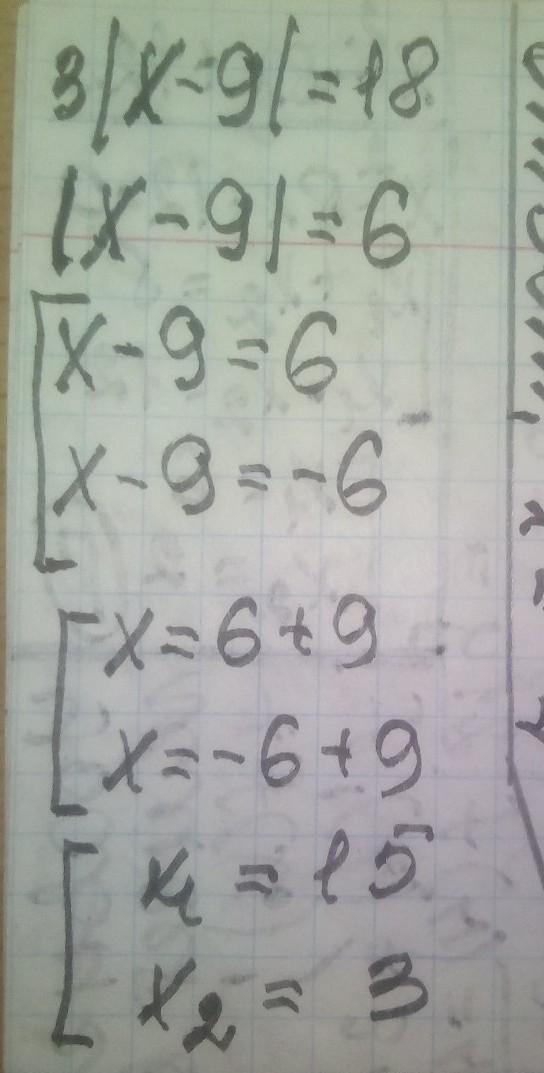 3|x-9|=18
|x-9|=6
x-9=6
x-9=-6
x=6+9
x=-6+9
x₁=15
x₂=3